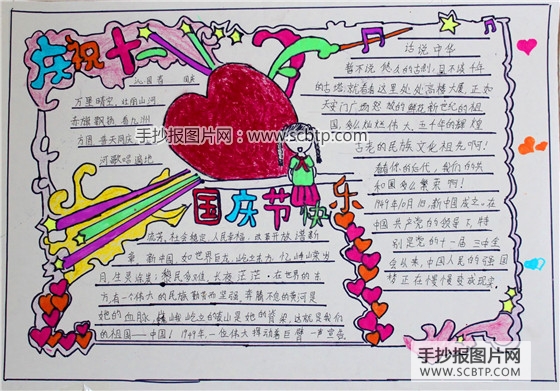 庆祝十一
国庆
万里晴空,壮丽山河
赤旗飘扬 看九洲
方圆 普天同庆
河歌唱满地
手抄报图片网
www.scbtp.com
国庆节快乐
话说中华
暂不说 悠久的古刹,且不谈千年
的古塔,就看看这里处处高楼大厦,正如
天安门广场
国,多么灿烂伟大,五千年的辉煌
古老的民族文化祖先啊!
看看你的近代,我们的共
和国多么繁荣啊!
1949年10月1日,新中国成立。在
中国共产党的领导下,特
别是党的十一届三中全
会以来,中国人民的强国
梦正在慢慢变成现实。
社会稳定,人民幸福,改革开放
新中国,如世界巨龙,屹立东方。忆峥嵘岁
月,生灵涂炭,黎民多难,长夜茫茫。在世界的东
方,有一个伟大的民族勤劳而坚强,奔腾不息的黄河是
她的血脉,巍峨屹立的泰山是她的脊梁,这就是我们
的祖国——中国!1949年,一位伟人挥动着巨臂一声宣告
手抄报图片网
WWW.SCBTP.COM